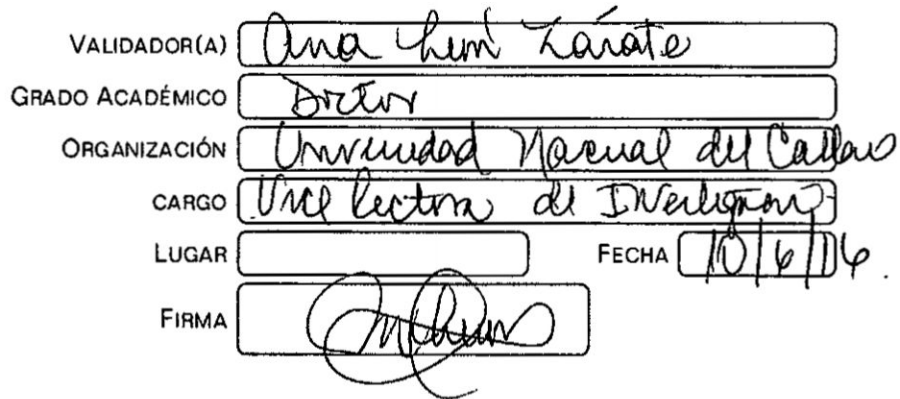 VALIDADOR(A) Ana León Zárate
GRADO ACADÉMICO Doctor
ORGANIZACIÓN Universidad Nacional del Callao
CARGO Vice Rectora de Investigación
LUGAR
FECHA 10/6/16.
FIRMA